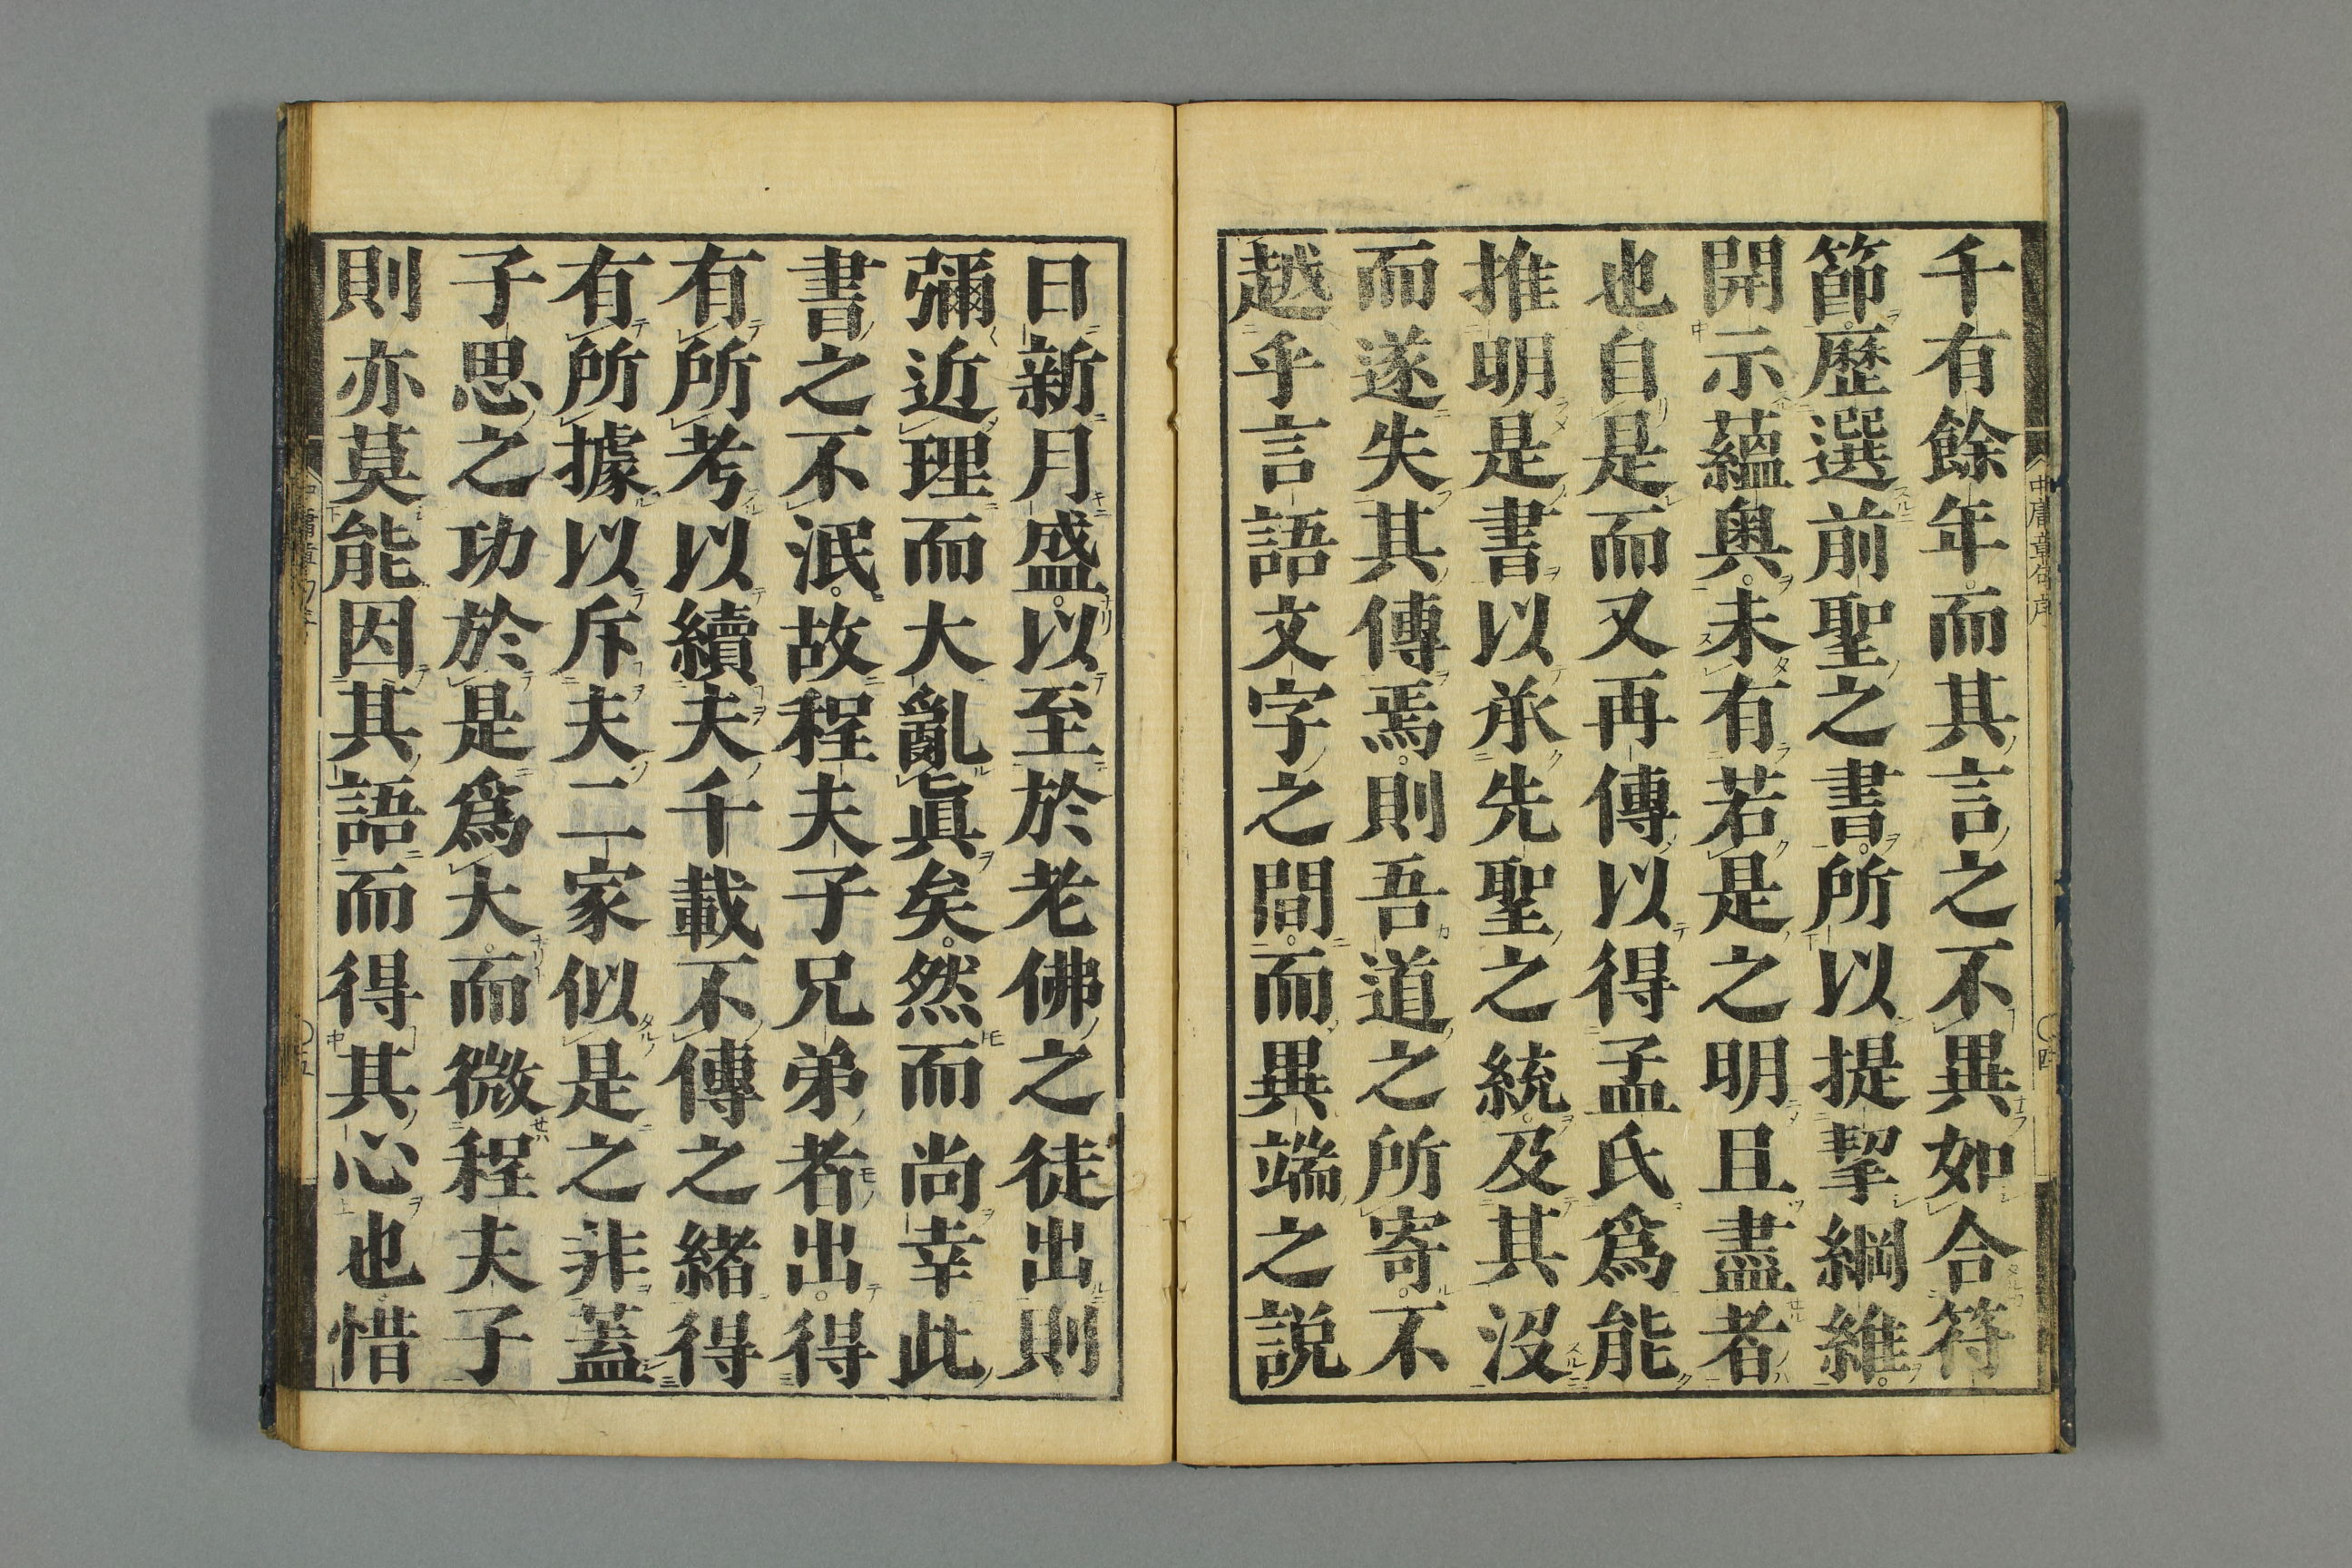 千有餘年而其言之不異如合符
節歷選前聖之書所以提挈綱維
開示蘊奧未有若是之明且盡者
也自是而又再傳以得孟氏爲能
推明是書以承先聖之統及其沒
而遂失其傳焉則吾道之所寄不
越乎言語文字之間而異端之說
中庸章句序
四
日新月盛以至於老佛之徒出則
彌近理而大亂眞矣然而尚幸此
書之不泯故程夫子兄弟者出得
有所考以續夫千載不傳之緒得
有所據以斥夫二家似是之非蓋
子思之功於是爲大而微程夫子
則亦莫能因其語而得其心也惜
五